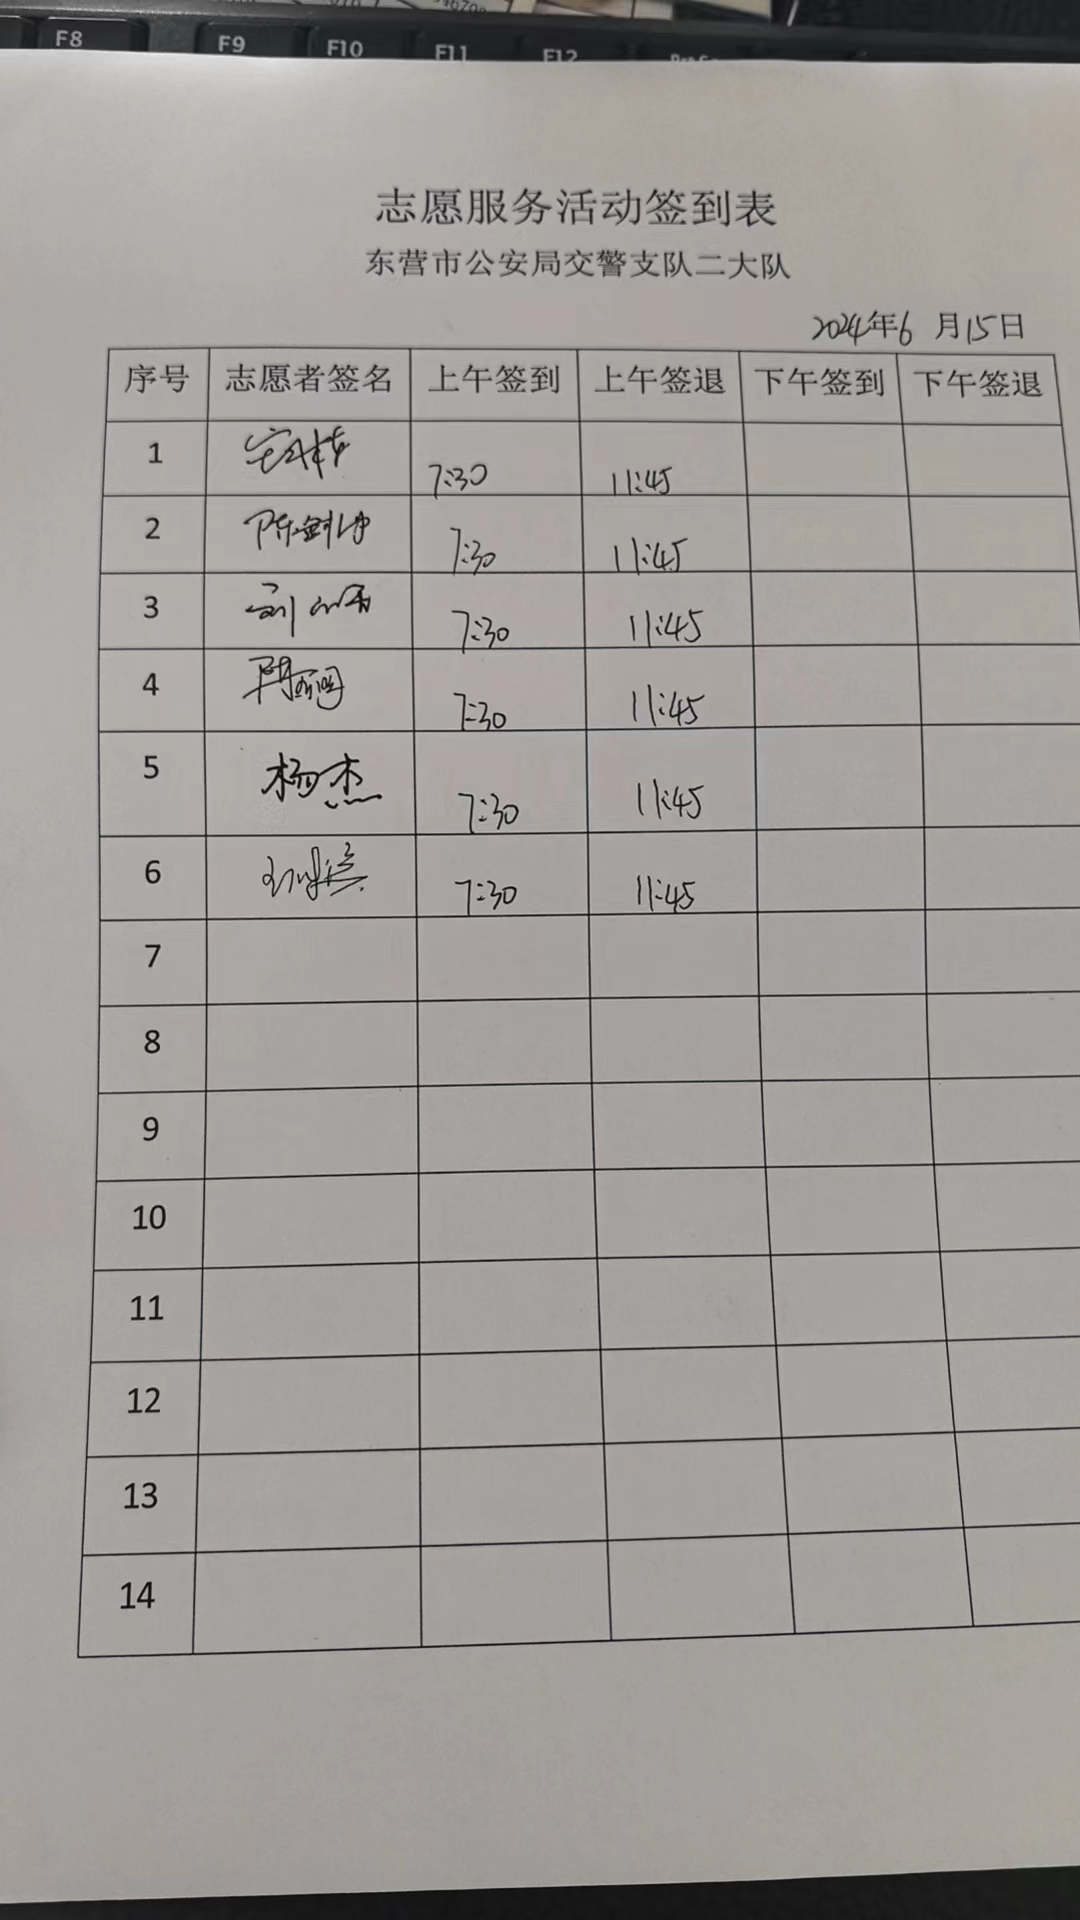 F8 F9 F10 F11 F12
志愿服务活动签到表
东营市公安局交警支队二大队
2024年6 月15日
序号 志愿者签名 上午签到 上午签退 下午签到 下午签退
1 7:30 11:45
2 7:30 11:45
3 7:30 11:45
4 7:30 11:45
5 杨杰 7:30 11:45
6 7:30 11:45
7
8
9
10
11
12
13
14